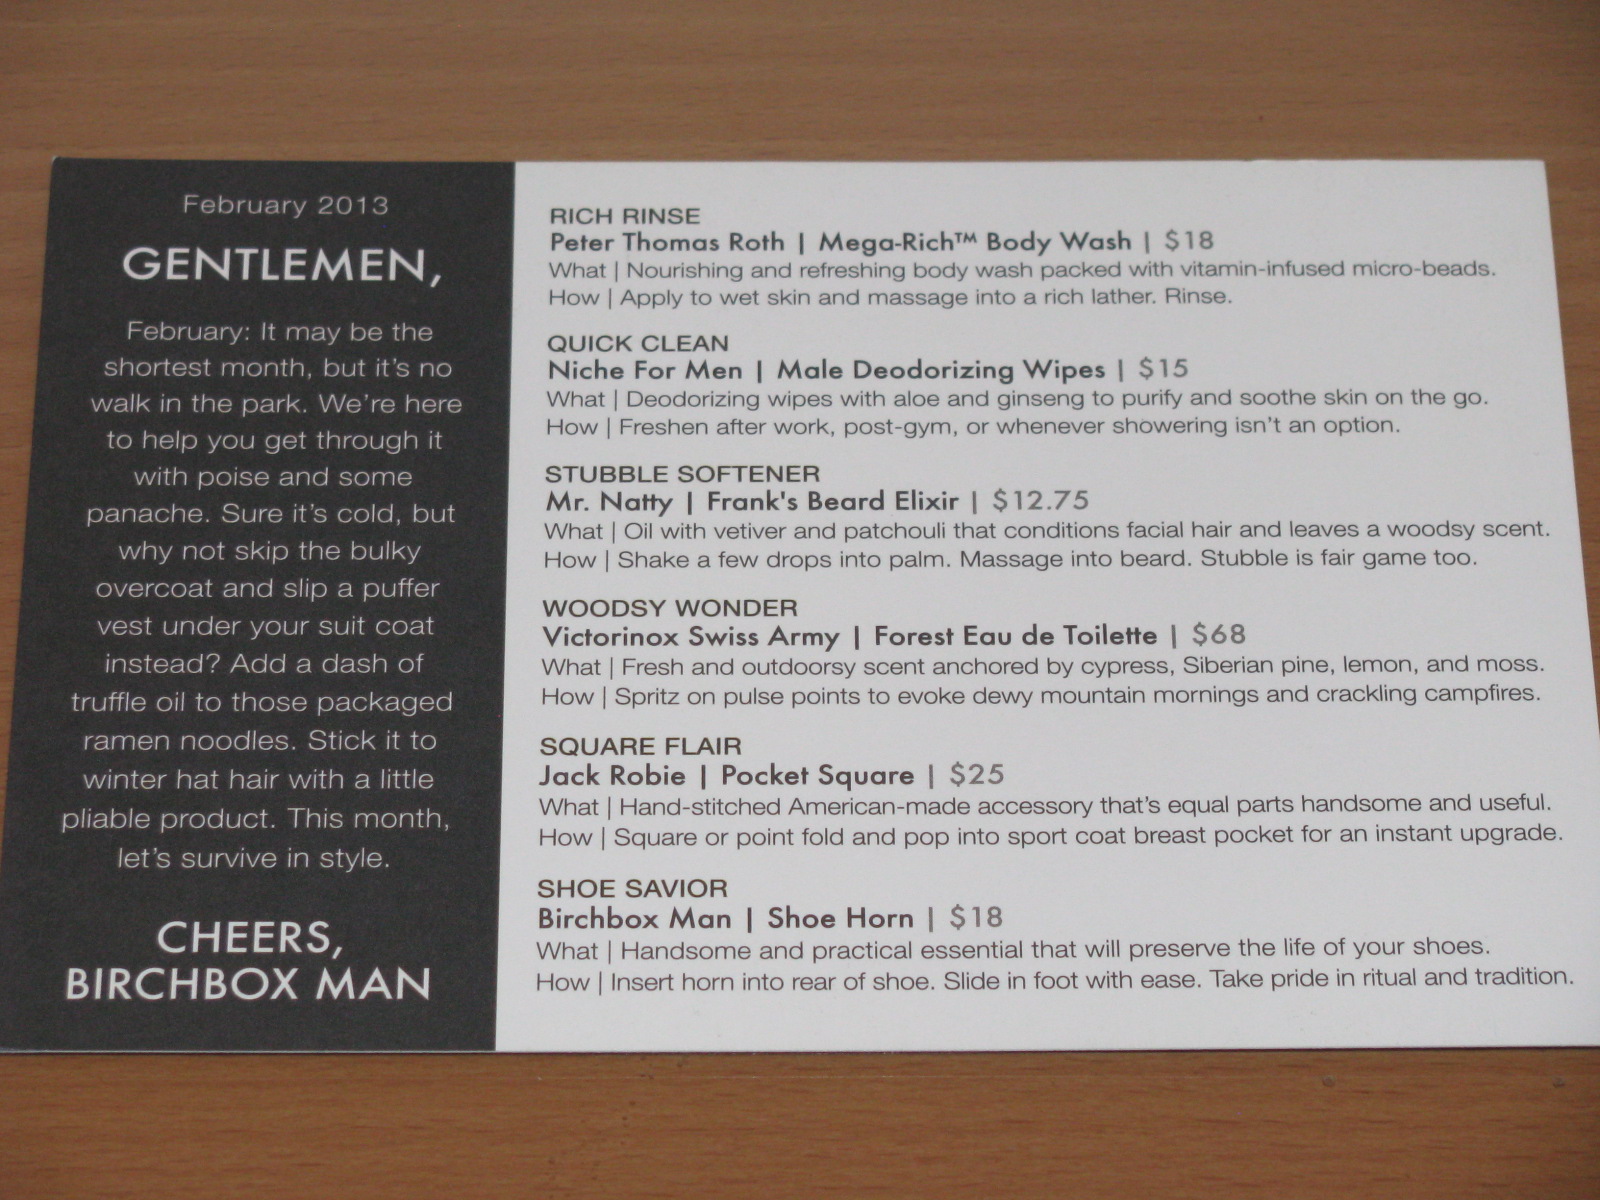 February 2013
GENTLEMEN,
February: It may be the
shortest month, but it's no
walk in the park. We're here
to help you get through it
with poise and some
panache. Sure it's cold, but
why not skip the bulky
overcoat and slip a puffer
vest under your suit coat
instead? Add a dash of
truffle oil to those packaged
ramen noodles. Stick it to
winter hat hair with a little
pliable product. This month,
let's survive in style.
CHEERS,
BIRCHBOX MAN
RICH RINSE
Peter Thomas Roth | Mega-Rich™ Body Wash | $18
What | Nourishing and refreshing body wash packed with vitamin-infused micro-beads.
How | Apply to wet skin and massage into a rich lather. Rinse.
QUICK CLEAN
Niche For Men | Male Deodorizing Wipes | $15
What | Deodorizing wipes with aloe and ginseng to purify and soothe skin on the go.
How | Freshen after work, post-gym, or whenever showering isn't an option.
STUBBLE SOFTENER
Mr. Natty | Frank's Beard Elixir | $12.75
What | Oil with vetiver and patchouli that conditions facial hair and leaves a woodsy scent.
How | Shake a few drops into palm. Massage into beard. Stubble is fair game too.
WOODSY WONDER
Victorinox Swiss Army | Forest Eau de Toilette | $68
What | Fresh and outdoorsy scent anchored by cypress, Siberian pine, lemon, and moss.
How | Spritz on pulse points to evoke dewy mountain mornings and crackling campfires.
SQUARE FLAIR
Jack Robie | Pocket Square | $25
What | Hand-stitched American-made accessory that's equal parts handsome and useful.
How | Square or point fold and pop into sport coat breast pocket for an instant upgrade.
SHOE SAVIOR
Birchbox Man | Shoe Horn | $18
What | Handsome and practical essential that will preserve the life of your shoes.
How | Insert horn into rear of shoe. Slide in foot with ease. Take pride in ritual and tradition.